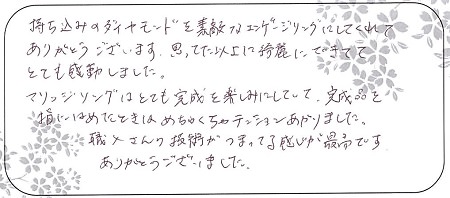 持ち込みのダイヤモンドを素敵なエンゲージリングにしてくれて
ありがとうございます。思ってた以上に綺麗にできてて
とても感動しました。
マリッジリングはとても完成を楽しみにしていて、完成品を
指にはめたときはめちゃくちゃテンションあがりました。
職人さんの技術がつまってる感じが最高です
ありがとうございました。